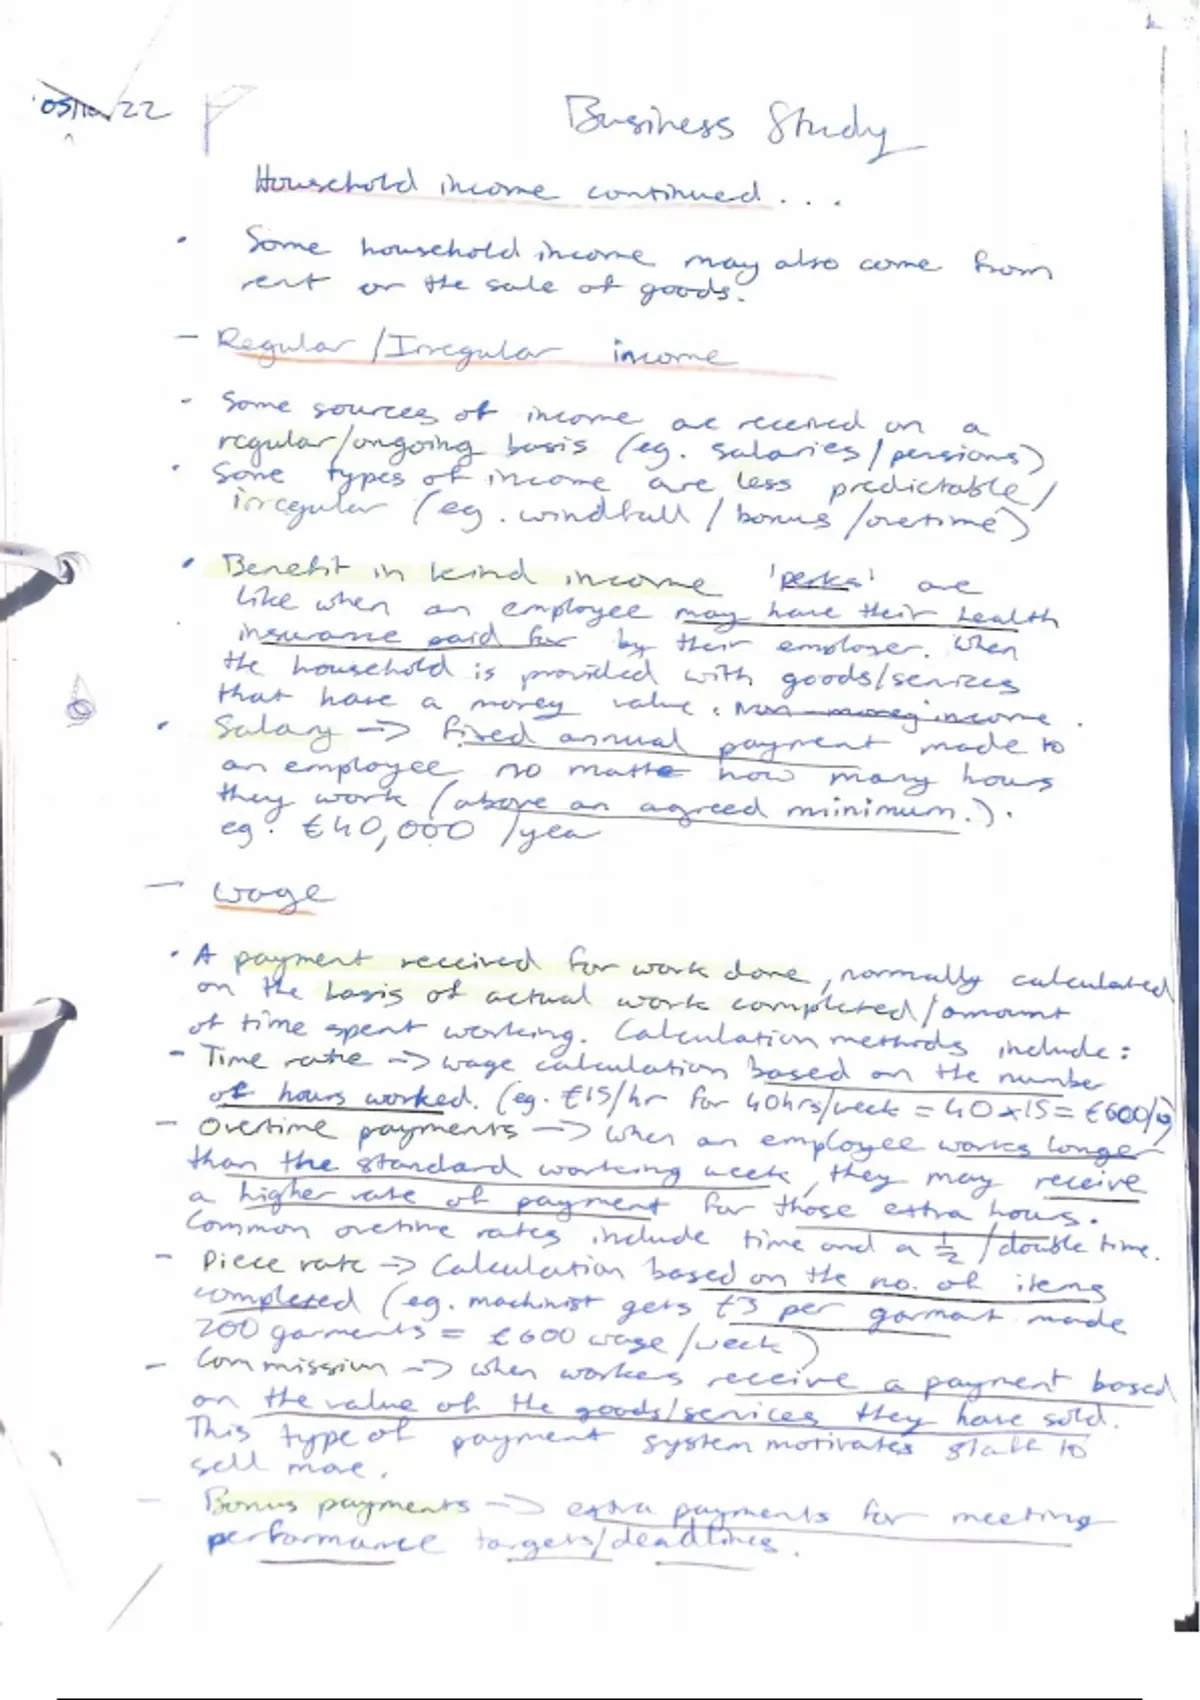 Business Study
Household income continued...
• Some household income may also come from
rent or the sale of goods.
- Regular/Irregular income
• Some sources of income are received on a
regular/ongoing basis (eg. salaries/pensions)
• Some types of income are less predictable/
irregular (eg. windfall/bonus/overtime)
• Benefit in kind income 'perks' are
like when an employee may have their health
insurance paid for by their employer. When
the household is provided with goods/services
that have a money value. non-money income.
• Salary -> fixed annual payment made to
an employee no matte how many hours
they work (above an agreed minimum.).
eg. €40,000 /year
- Wage
• A payment received for work done, normally calculated
on the basis of actual work completed/amount
of time spent working. Calculation methods include:
- Time rate -> wage calculation based on the number
of hours worked. (eg. €15/hr for 40hrs/week = 40x15 = €600/w)
- Overtime payments -> when an employee works longer
than the standard working week, they may receive
a higher rate of payment for those extra hours.
Common overtime rates include time and a ½ /double time.
- Piece rate -> Calculation based on the no. of items
completed (eg. machinist gets €3 per garment made
200 garments = €600 wage/week)
- Commission -> when workers receive a payment based
on the value of the goods/services they have sold.
This type of payment system motivates staff to
sell more.
- Bonus payments -> extra payments for meeting
performance targets/deadlines.